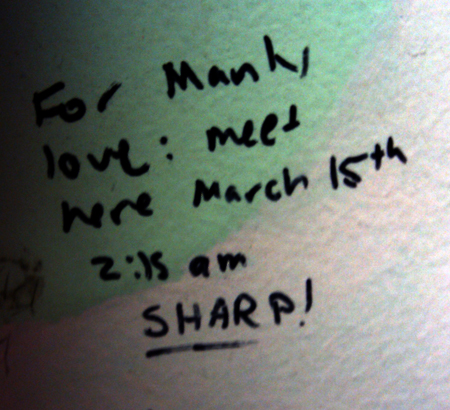 For Manly
love: meet
here March 15th
2:15 am
SHARP!